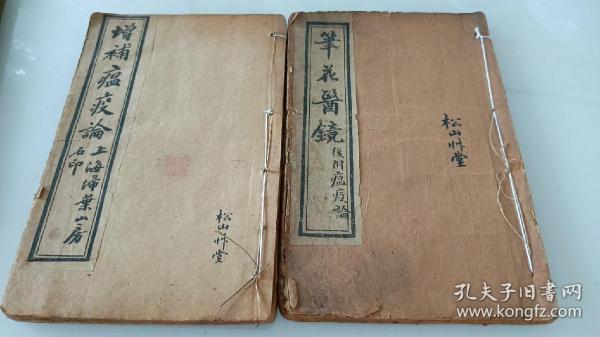 增補瘟疫論上海埽葉山房
石印
松山艸堂
筆花醫鏡後附瘟疫論
松山艸堂
孔夫子旧书网
www.kongfz.com